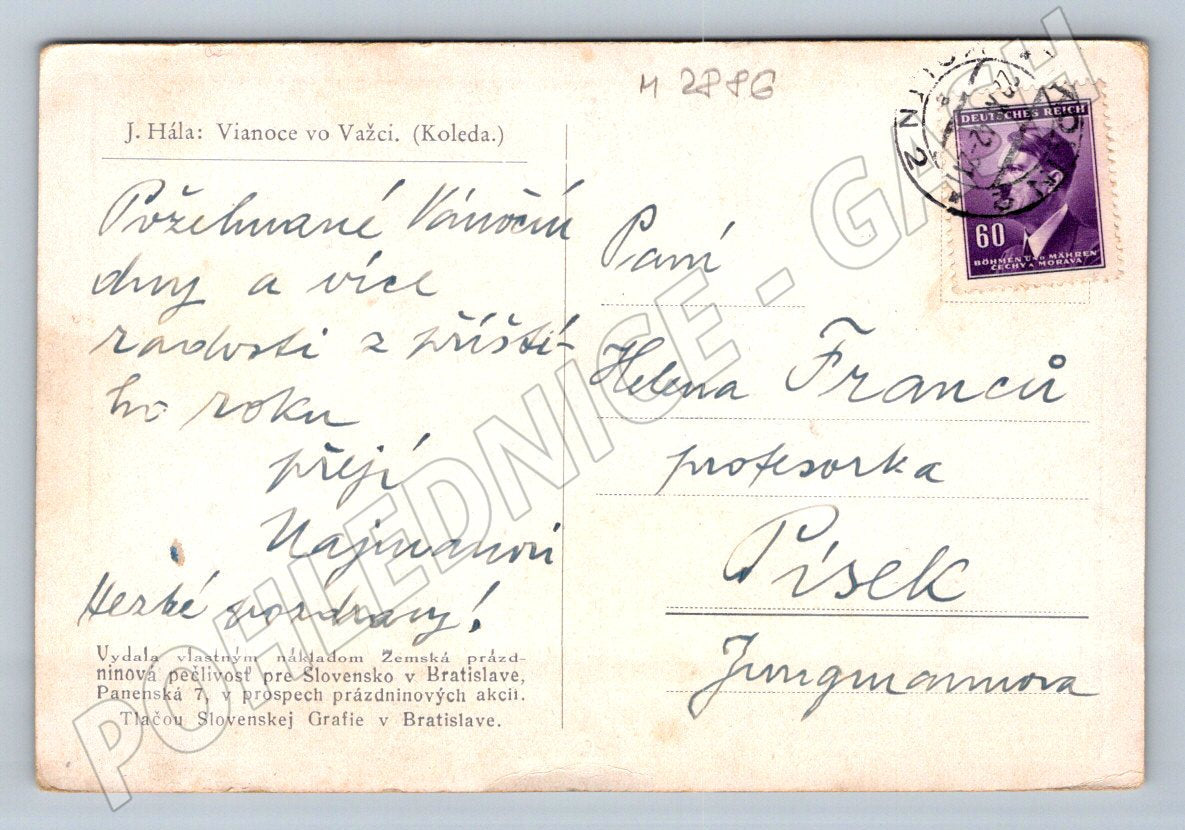 M 2886
J. Hála: Vianoce vo Važci. (Koleda.)
Požehnané Vánoční
dny a více
radosti z příští-
ho roku
přejí
Najmanovi
Hezké pozdravy!
Vydala vlastným nákladom Zemská prázd-
ninová pečlivosť pre Slovensko v Bratislave,
Panenská 7, v prospech prázdninových akcií.
Tlačou Slovenskej Grafie v Bratislave.
DEUTSCHES REICH
60
BÖHMEN UND MÄHREN
ČECHY A MORAVA
Paní
Helena Franců
profesorka
Písek
Jungmannova
POHLEDNICE - GACH